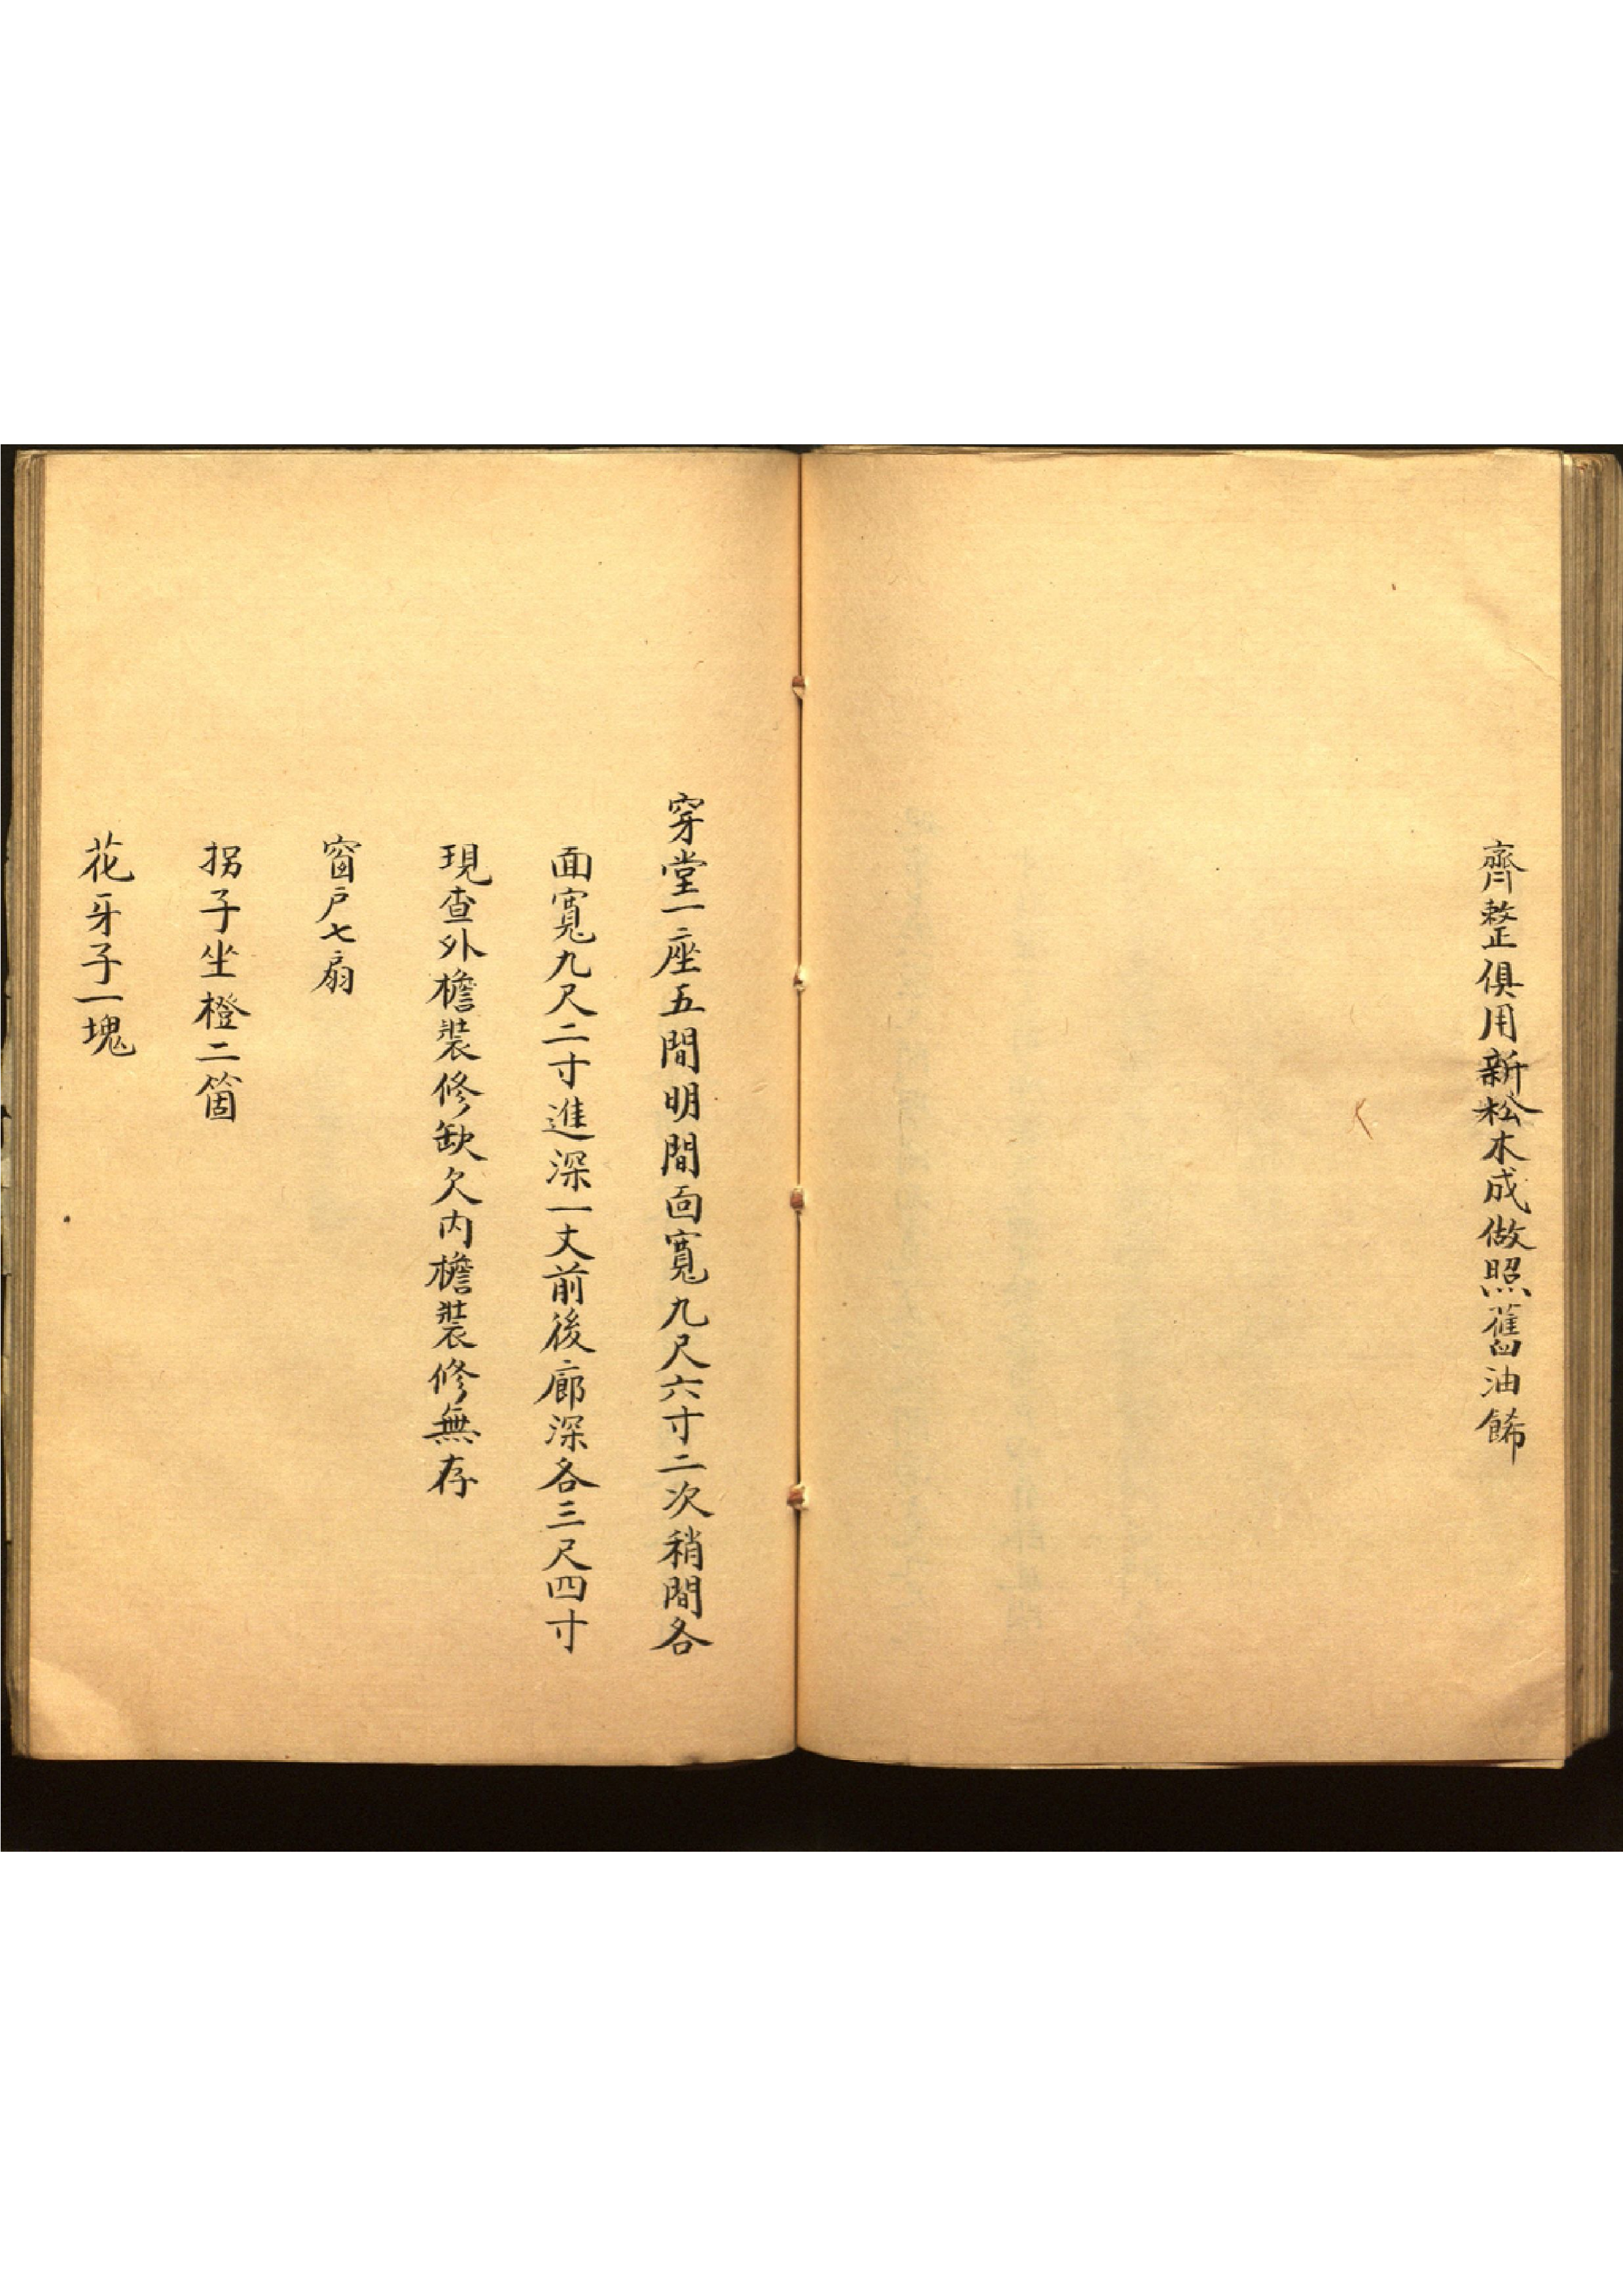 齊整俱用新松木成做照舊油餙
穿堂一座五間明間面寬九尺六寸二次稍間各
面寬九尺二寸進深一丈前後廊深各三尺四寸
現查外檐裝修缺欠內檐裝修無存
窗戶七扇
拐子坐橙二箇
花牙子一塊